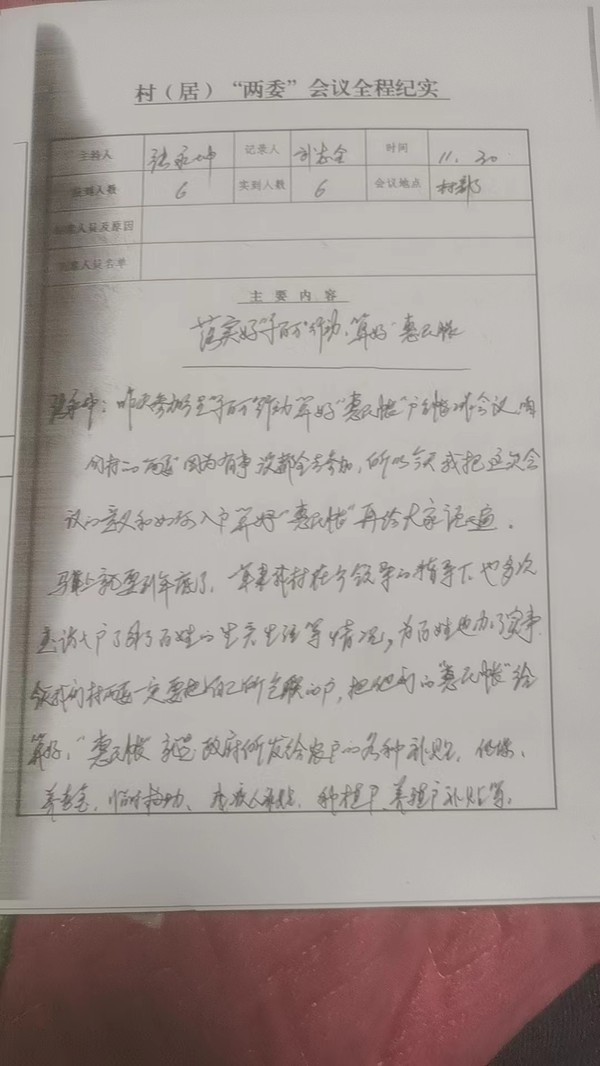 村（居）“两委”会议全程纪实
主持人 张永坤 记录人 时间 11.30
应到人数 6 实到人数 6 会议地点 村部
人员及原因
人员名单
主要内容
落实好“千百万”行动、算好“惠民账”
昨天参加“千百万”行动算好“惠民账”会议，由
因为有事没都全去参加，所以今天我把这次会
议的意义和如何入户算好“惠民账”再给大家说一遍。
马上就要到年底了，一年来我村在领导的指导下也多次
走访入户了解了百姓的生产生活等情况，为百姓也办了实事
我们村两委一定要把自己所包联的户，把他们的“惠民账”给
算好，“惠民账”就是政府所发给农户的各种补贴，低保、
养老金、临时救助、残疾人补贴、种植户、养殖户补贴等。